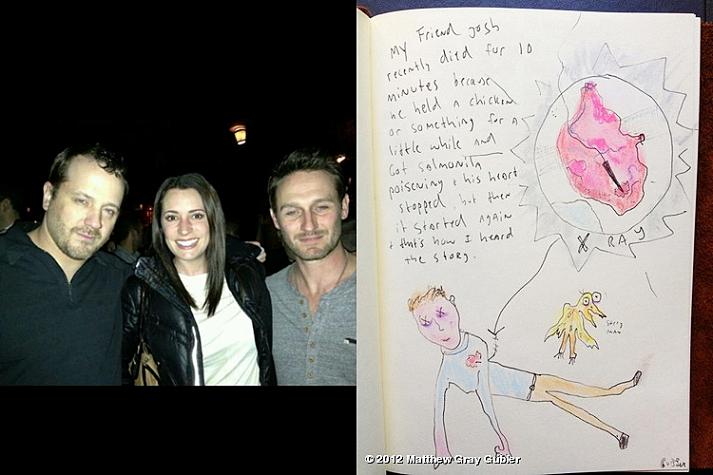 My Friend josh
recently died for 10
minutes because
he held a chicken
or something for a
little while and
Got salmonila
poisening + his heart
stopped, but then
it started again
& that's how I heard
the story.
X RAY
© 2012 Matthew Gray Gubler